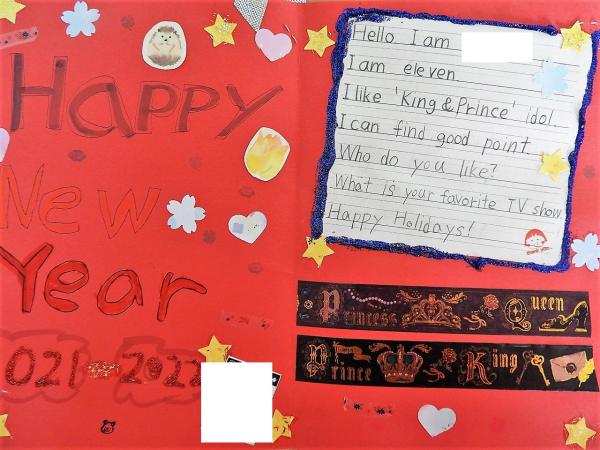 Happy
New
Year
2021-2022
Hello I am
I am eleven
I like 'King & Prince' idol.
I can find good point.
Who do you like?
What is your favorite TV show
Happy Holidays!
Princess Queen
Prince King